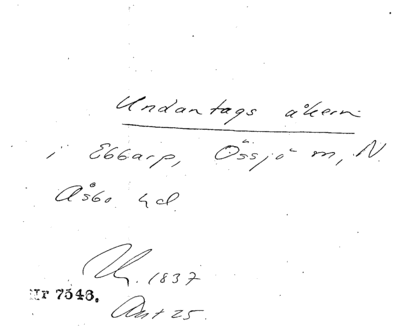 Undantags åkern
i Ebbarp, Össjö m, N.
Åsbo hd.
Nr 7546.
1837
Akt 25.